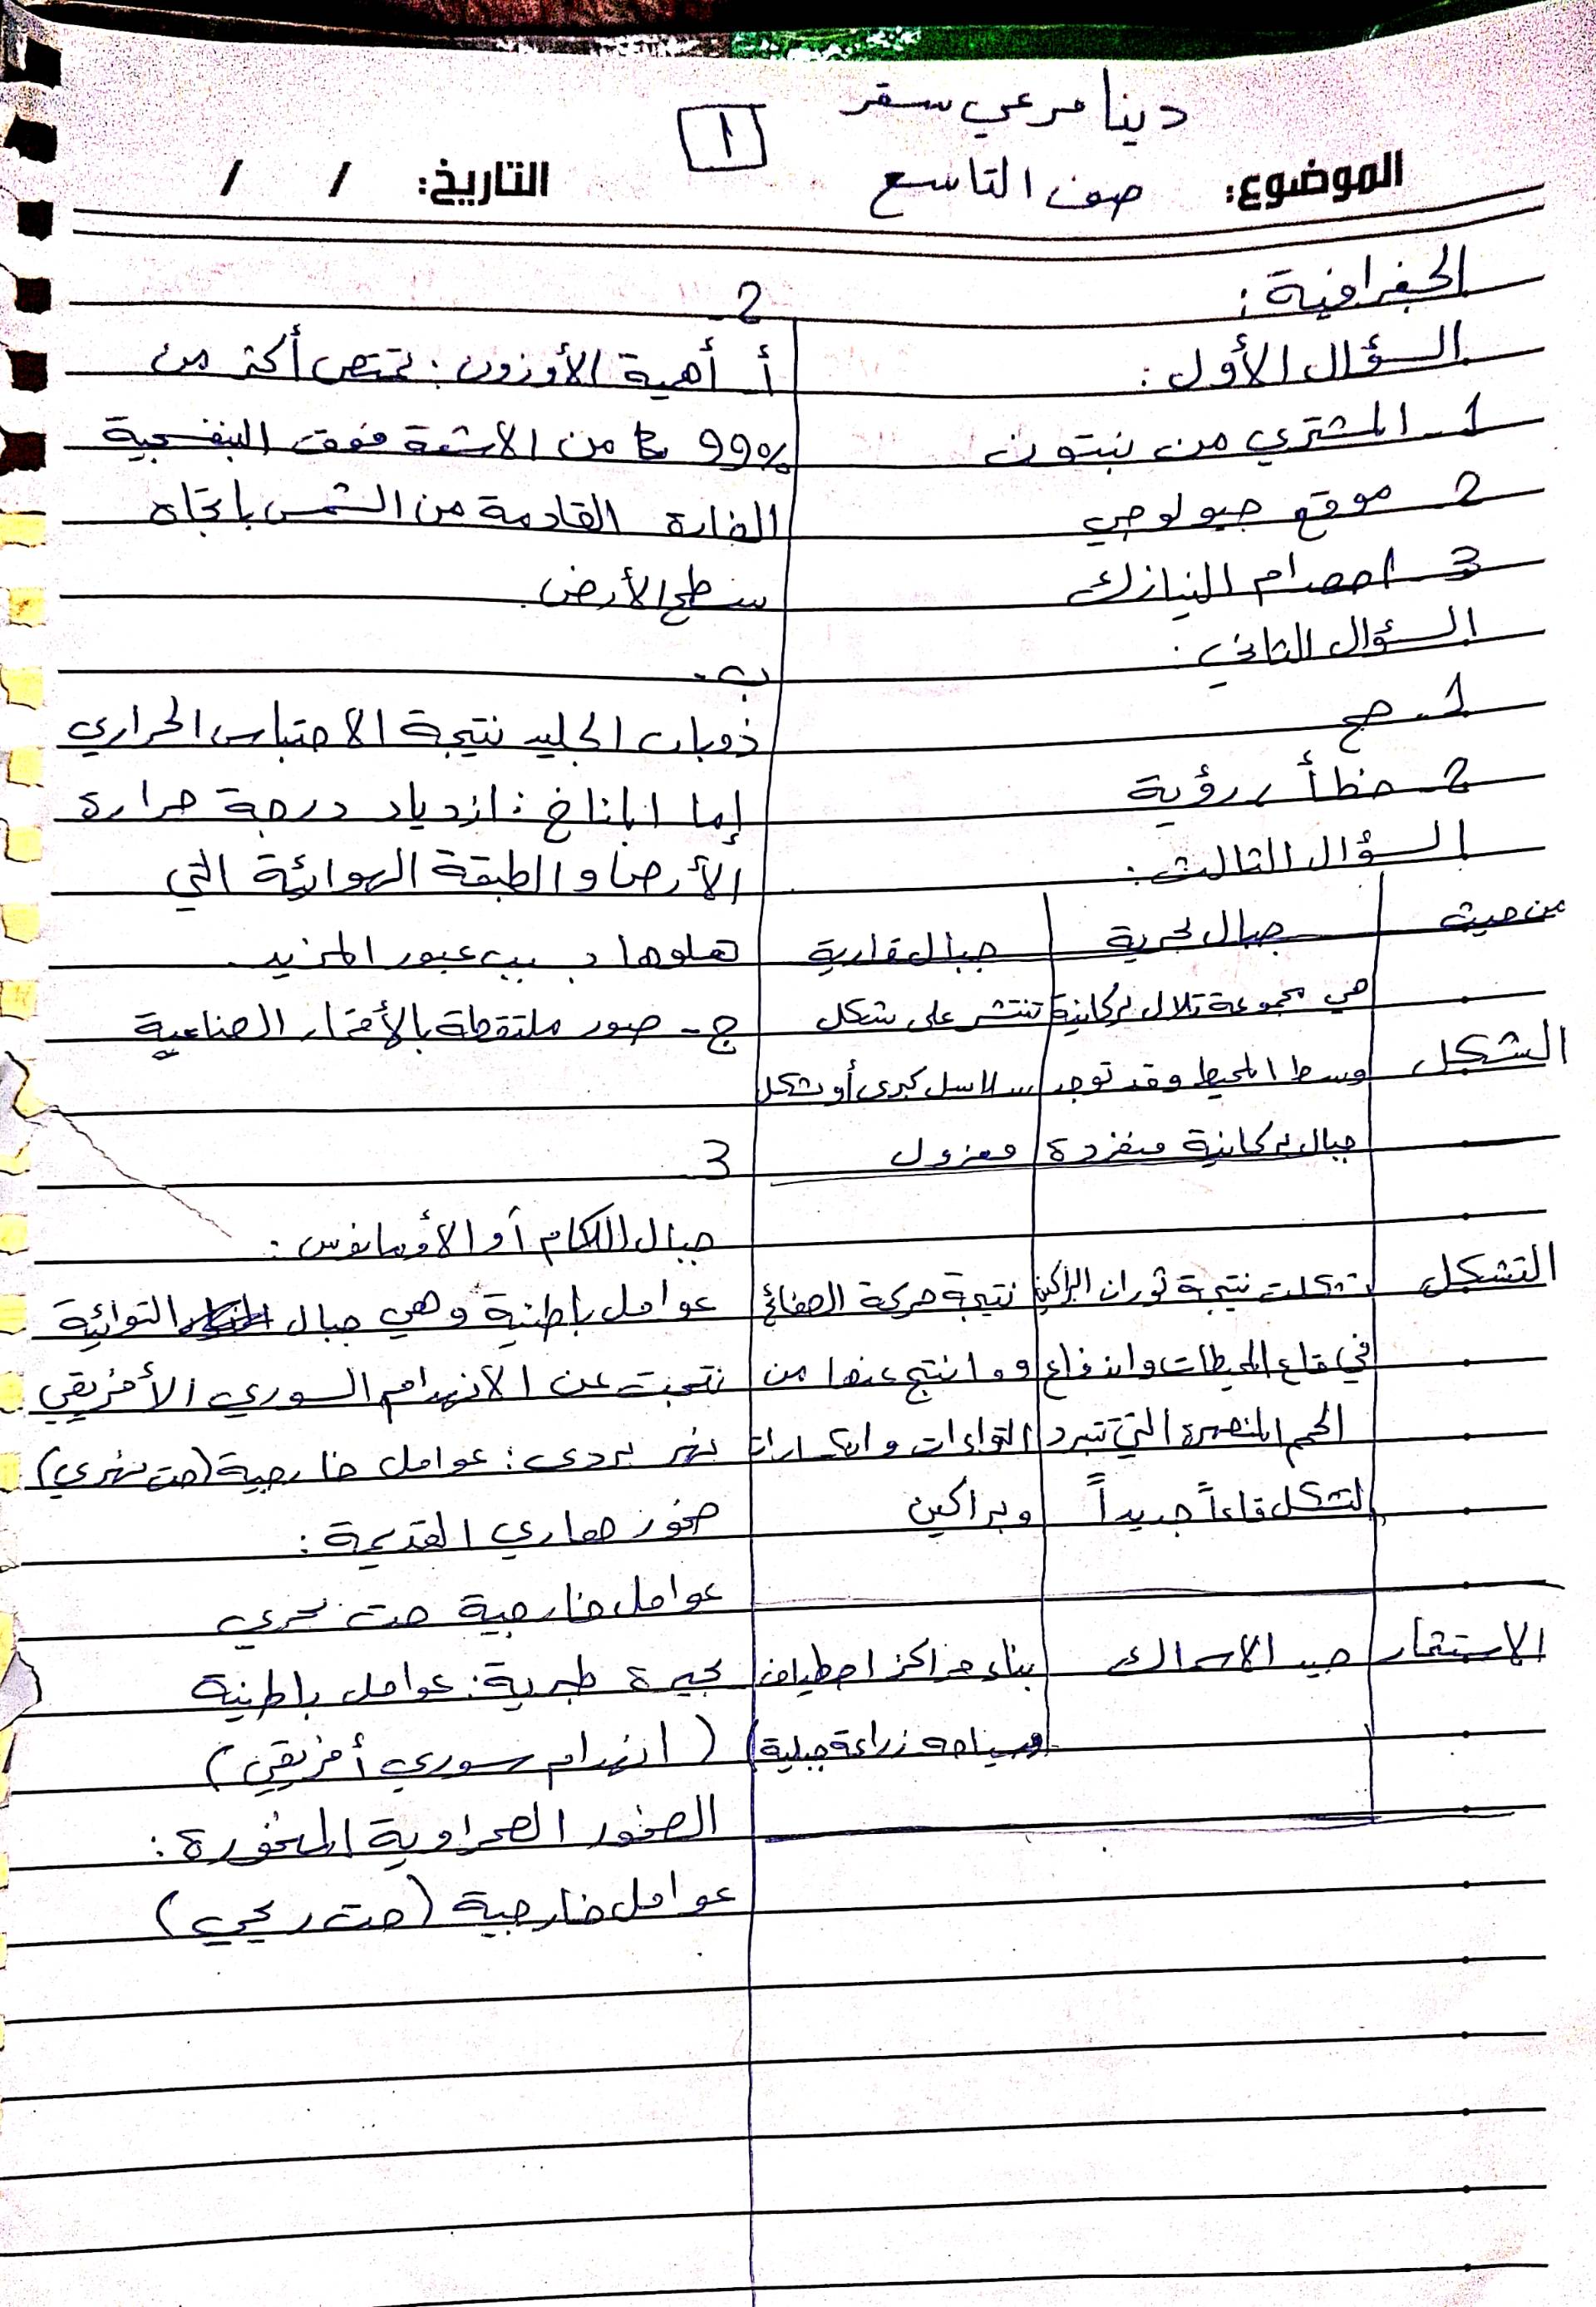 دينا مرعي سقر
1
الموضوع: صف التاسع
التاريخ: / /
الجغرافية:
السؤال الأول:
1- المشتري من نبتون
2- موقع جيولوجي
3- اصدام النيازك
السؤال الثاني:
1- صح
2- خطأ, رؤية
السؤال الثالث:
من حيث | جبال بحرية | جبال قارية
الشكل | هي مجموعة تلال بركانية | تنتشر على شكل
وسط المحيط وقد توجد | سلاسل كبرى أو شكل
جبال بركانية منفردة | معزول
التشكل | تشكلت نتيجة ثوران البراكين | نتيجة حركة الصفائح
في قاع المحيطات واندفاع | وما نتج عنها من
الحمم المنصهرة التي تتبرد | التواءات وانكسارات
لتشكل قاعاً جديداً | وبراكين
الاستثمار | صيد الاسماك | بناء مراكز اصطياف
وسياحه زراعة جبلية
2-
أ- أهمية الأوزون: تمتص أكثر من
99% من الاشعة فوق البنفسجية
الضارة القادمة من الشمس باتجاه
سطح الأرض.
ب-
ذوبان الجليد نتيجة الاحتباس الحراري
إما المناخ: ازدياد درجة حرارة
الأرض والطبقة الهوائية التي
تعلوها بسبب عبور المزيد
ج- صور ملتقطة بالأقمار الصناعية
3
جبال اللكام أو الأمانوس:
عوامل باطنية وهي جبال التوائية
نتجت عن الانهدام السوري الأفريقي
نهر بردى: عوامل خارجية (حت نهري)
صخور صماري القديمة:
عوامل خارجية حت بحري
بحيرة طبرية: عوامل باطنية
(انهدام سوري أفريقي)
الصخور الصحراوية المخورة:
عوامل خارجية (حت ريحي)